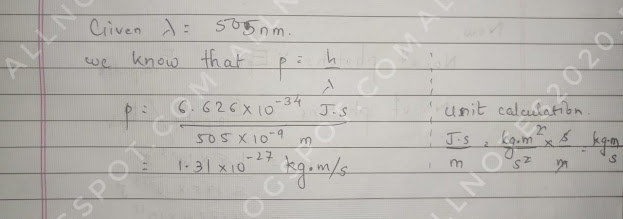 Given λ = 505nm.
we know that p = h/λ
p = 6.626×10⁻³⁴ J.s / 505×10⁻⁹ m
= 1.31×10⁻²⁷ kg.m/s
Unit calculation.
J.s/m = kg.m²/s² × s/m = kg.m/s